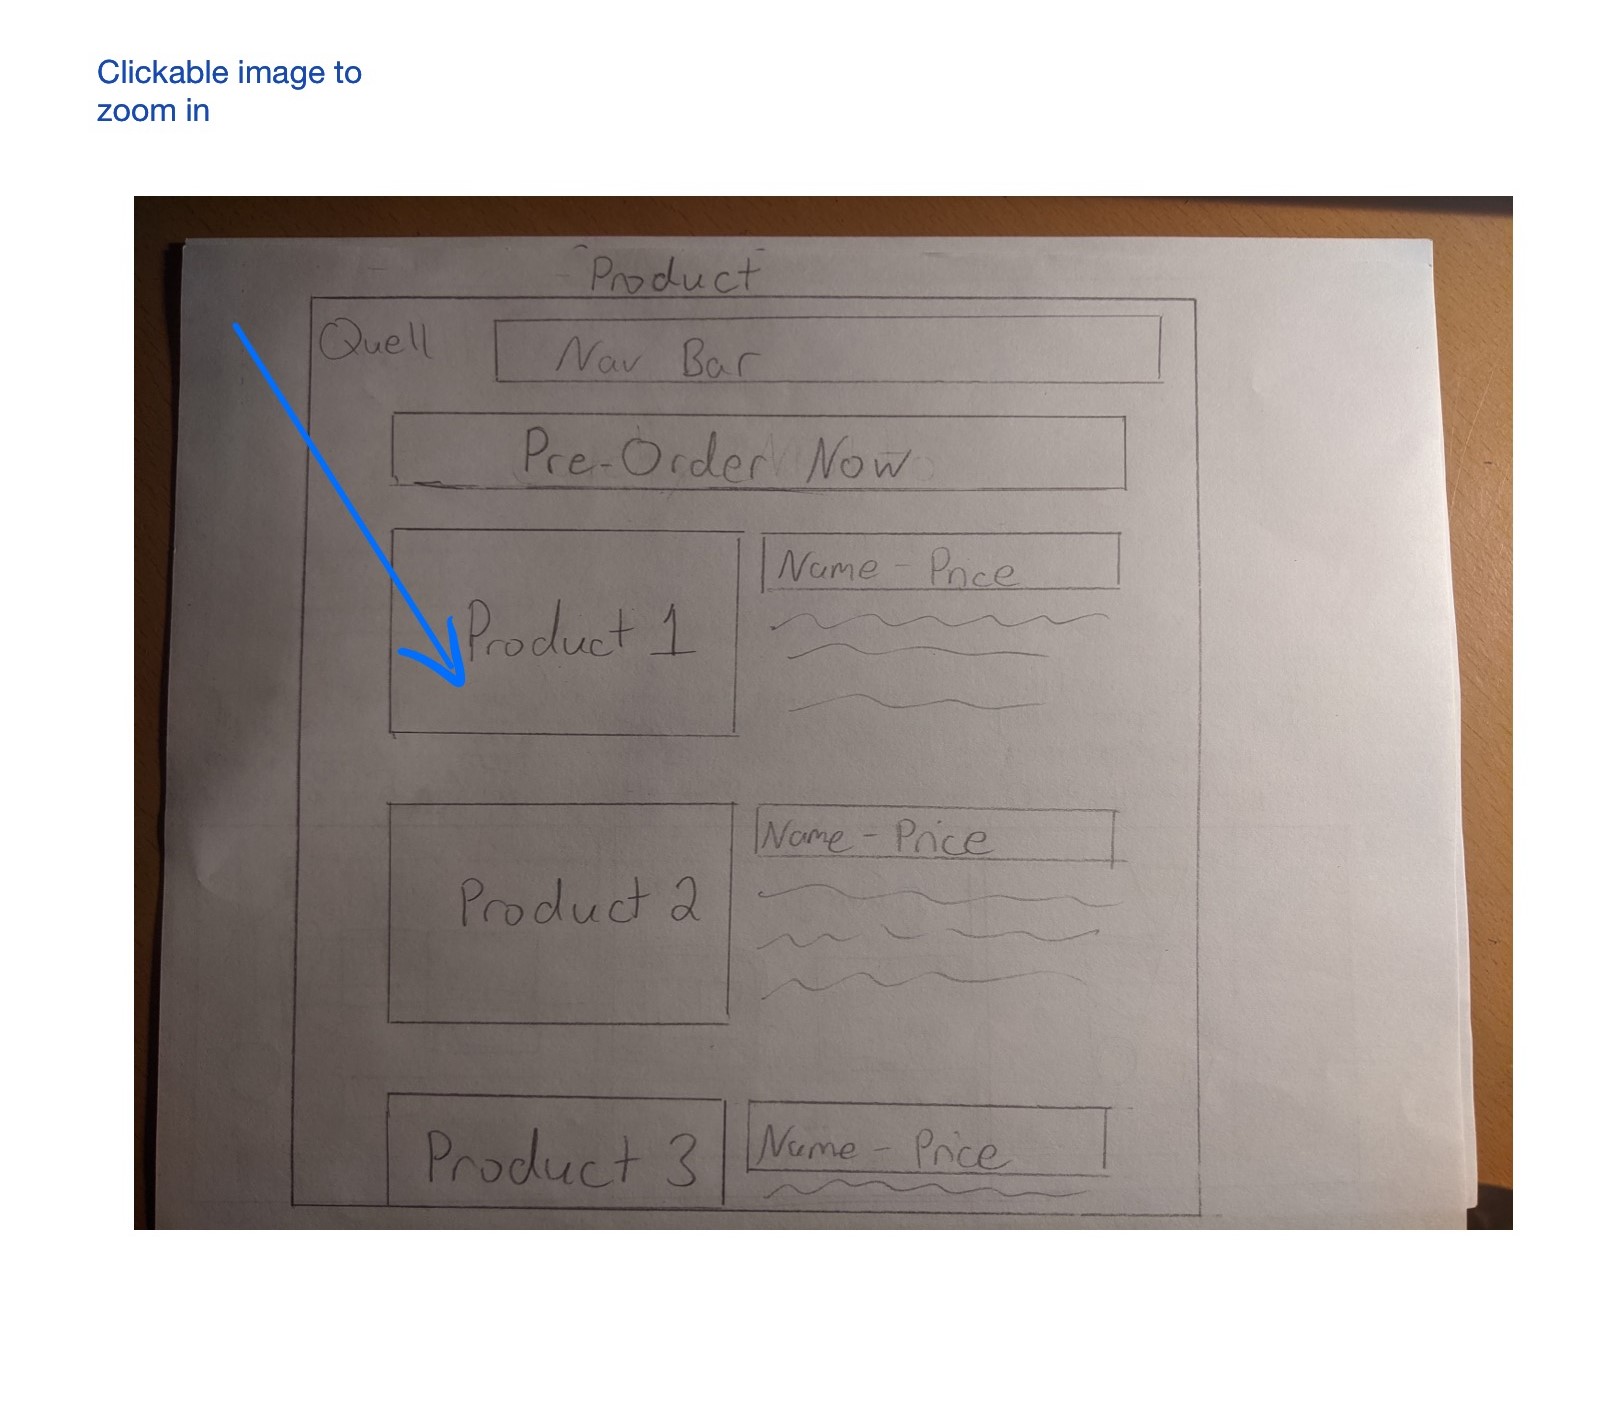 Clickable image to
zoom in
Product
Quell
Nav Bar
Pre-Order Now
Product 1
Name - Price
Product 2
Name - Price
Product 3
Name - Price